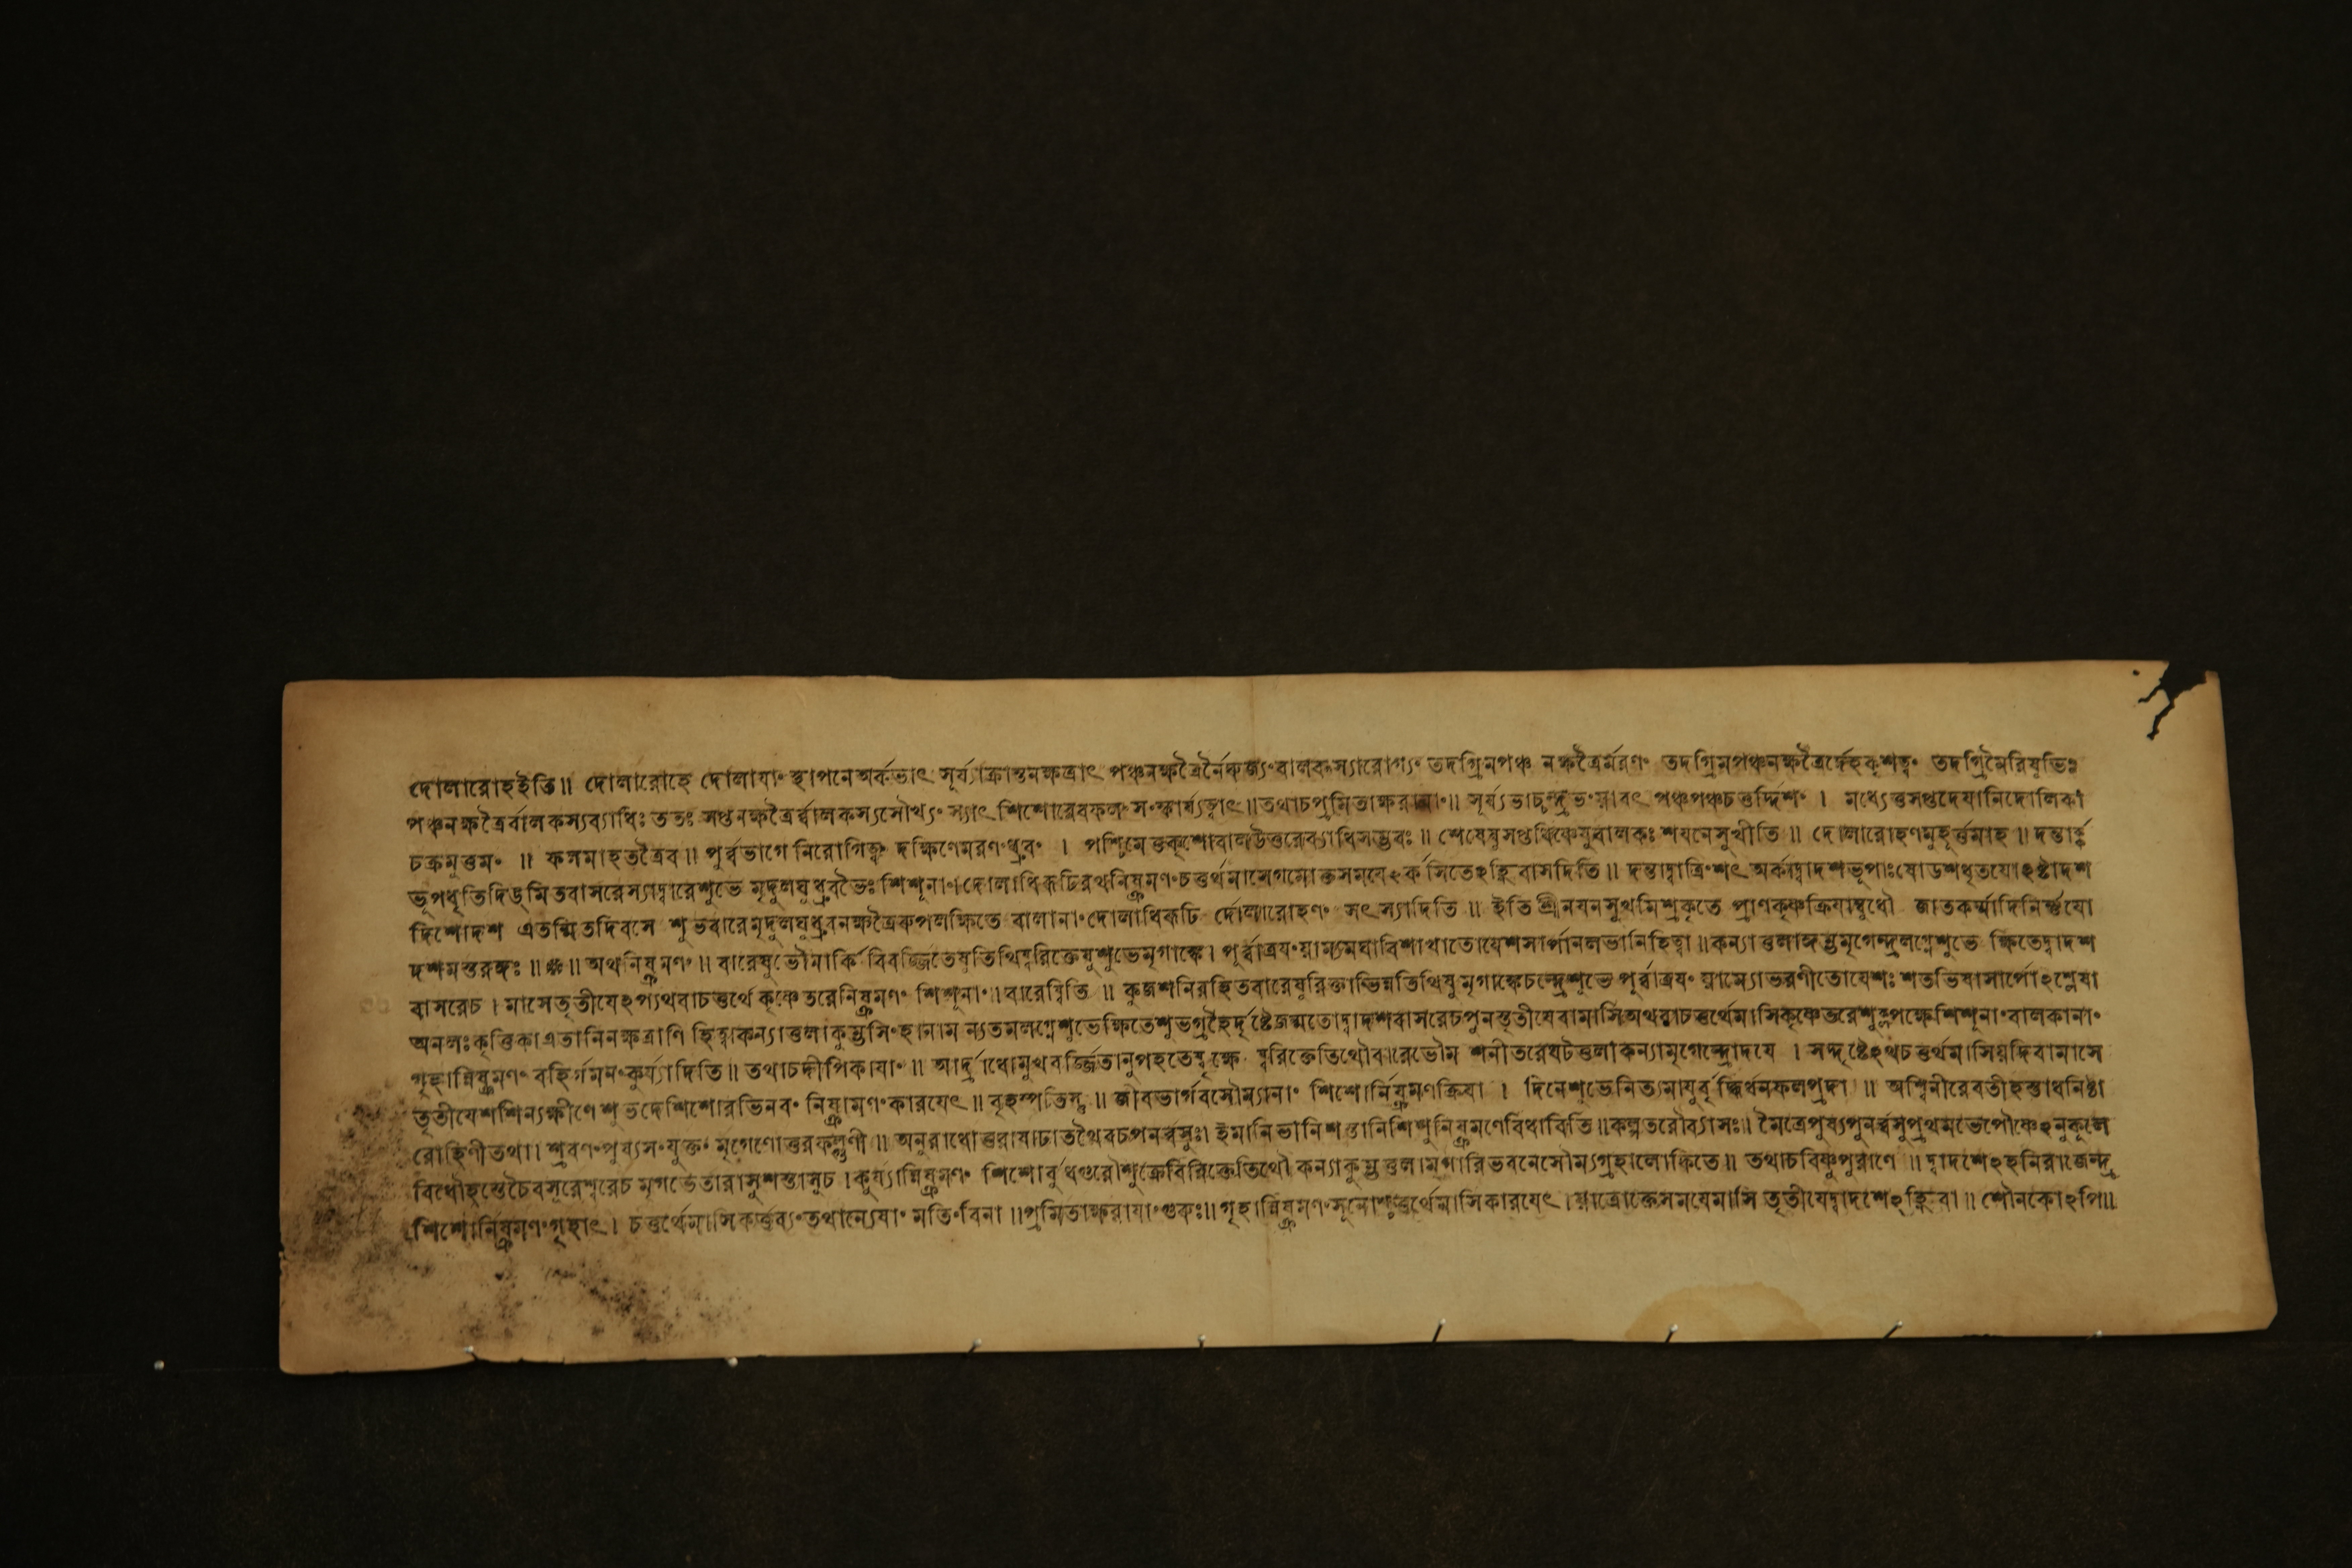 দোলারোহইতি॥ দোলারোহে দোলাযাং স্থাপনে অর্কভাৎ সূর্য্যাক্রান্তনক্ষত্রাৎ পঞ্চনক্ষত্রৈর্নৈরুজ্যং বালকস্যারোগ্যং তদগ্রিমপঞ্চ নক্ষত্রৈর্মরণং তদগ্রিমপঞ্চনক্ষত্রৈর্দ্দেহকৃশত্বং তদগ্রিমৈরিষুভিঃ
পঞ্চনক্ষত্রৈর্বালকস্যব্যাধিঃ ততঃ সপ্তনক্ষত্রৈর্ব্বালকস্যসৌখ্যং স্যাৎ শিশোরেবফলং সংস্কার্য্যত্বাৎ॥তথাচপ্রমিতাক্ষরাযাং॥ সূর্য্যভাচ্চন্দ্রভংয়াবৎ পঞ্চপঞ্চচতুর্দ্দিশং । মধ্যেতুসপ্তদেযানিদোলিকা
চক্রমুত্তমং ॥ ফলমাহতত্রৈব॥ পূর্ব্বভাগে নিরোগিত্বং দক্ষিণেমরণংধ্রুবং । পশ্চিমেতুকৃশোবালউত্তরেব্যাধিসম্ভবঃ॥ শেষেষুসপ্তধিষ্ণেষুবালকঃ শযনেসুখীতি॥ দোলারোহণমুহূর্ত্তমাহ॥ দন্তার্ক্ক
ভূপধৃতিদিঙ্মিতবাসরেস্যাদ্বারেশুভে মৃদুলঘুধ্রুবভৈঃ শিশূনাং।দোলাধিরূঢিরথনিষ্ক্রমণংচতুর্থমাসেগমোক্তসমযেঽর্কসিতেঽহ্নিবাসদিতি॥ দন্তাদ্বাত্রিংশৎ অর্কাদ্বাদশভূপাঃষোডশধৃতযোঽষ্টাদশ
দিশোদশ এতন্মিতদিবসে শুভবারেমৃদুলঘুধ্রুবনক্ষত্রৈরুপলক্ষিতে বালানাংদোলাধিরূঢি র্দোলারোহণং সৎস্যাদিতি॥ ইতিশ্রীনযনসুখমিশ্রকৃতে প্রাণকৃষ্ণক্রিযাম্বুধৌ জাতকর্ম্মাদিনির্ণ্ণযো
দশমস্তরঙ্গঃ॥ ॥অথনিষ্ক্রমণং॥ বারেষুভৌমার্কি বিবর্জ্জিতেষুতিথিষ্বরিক্তেষুশুভেমৃগাঙ্কে। পূর্ব্বাত্রযংয়াম্যমঘাবিশাখাতোযেশসার্পানলভানিহিত্বা॥কন্যাতুলাঙ্গম্ভমৃগেন্দ্রলগ্নেশুভে ক্ষিতেদ্বাদশ
বাসরেচ। মাসেতৃতীযেঽপ্যথবাচতুর্থে কৃষ্ণেতরেনিষ্ক্রমণং শিশূনাং॥বারেষ্বিতি॥ কুজশনিরহিতবারেষুরিক্তাভিন্নতিথিষুমৃগাঙ্কেচন্দ্রেশুভে পূর্ব্বাত্রযং য়াম্যোভরণীতোযেশঃ শতভিষাসার্পোঽশ্লেষা
অনলঃকৃত্তিকাএতানিনক্ষত্রাণি হিত্বাকন্যাতুলাকুম্ভসিংহানাম ন্যতমলগ্নেশুভেক্ষিতেশুভগ্রহৈর্দৃষ্টেজন্মতোদ্বাদশবাসরেচপুনস্তৃতীযেবামাসিঅথবাচতুর্থেমাসিকৃষ্ণেতরেশুক্লপক্ষেশিশূনাংবালকানাং
গৃহান্নিষ্ক্রমণং বহির্গমনংকুর্য্যাদিতি॥ তথাচদীপিকাযাং॥ আর্দ্রাধোমুখবর্জ্জিতানুপহতেষ্বৃক্ষে ষ্বরিক্তেতিথৌবারেভৌম শনীতরেঘটতুলাকন্যামৃগেন্দ্রোদযে । সদ্দৃষ্টেঽথচতুর্থমাসিয়দিবামাসে
তৃতীযেশশিন্যক্ষীণেশুভদেশিশোরভিনবং নিষ্ক্রামণংকারযেৎ॥ বৃহস্পতিস্তু॥ জীবভার্গবসৌম্যানাং শিশোর্নিষ্ক্রমণক্রিযা । দিনেশুভেনিত্যমাযুর্বৃদ্ধির্ধনফলপ্রদা॥ অশ্বিনীরেবতীহস্তাধনিষ্ঠা
রোহিণীতথা। শ্রবণংপুষ্যসংযুক্তং মৃগেণোত্তরফল্গুণী॥ অনুরাধোত্তরাষাঢাতথৈবচপনর্ব্বসুঃ। ইমানিভানিশস্তানিশিশুনিষ্ক্রমণেবিধাবিতি॥কল্পতরৌব্যাসঃ॥ মৈত্রেপুষ্যপুনর্ব্বসুপ্রথমভেপৌষ্ণেঽনুকুলে
বিধৌহস্তেচৈবসূরেশ্বরেচ মৃগভেতারাসুশস্তাসুচ।কুর্য্যান্নিষ্ক্রমণং শিশোর্বুধগুরৌশুক্রেবিরিক্তেতিথৌ কন্যাকুম্ভতুলামৃগারিভবনেসৌম্যগ্রহালোকিতে॥ তথাচবিষ্ণুপুরাণে॥ দ্বাদশেঽহনিরাজেন্দ্র
শিশোর্নিষ্ক্রমণংগৃহাৎ। চতুর্থেমাসিকর্ত্তব্যংতথান্যেষাং মতিংবিনা॥প্রমিতাক্ষরাযাংগুরুঃ॥ গৃহান্নিষ্ক্রমণংসূনোশ্চতুর্থেমাসিকারযেৎ।যাত্রোক্তেসমযেমাসি তৃতীযেদ্বাদশেঽহ্নিবা॥ শৌনকোঽপি॥